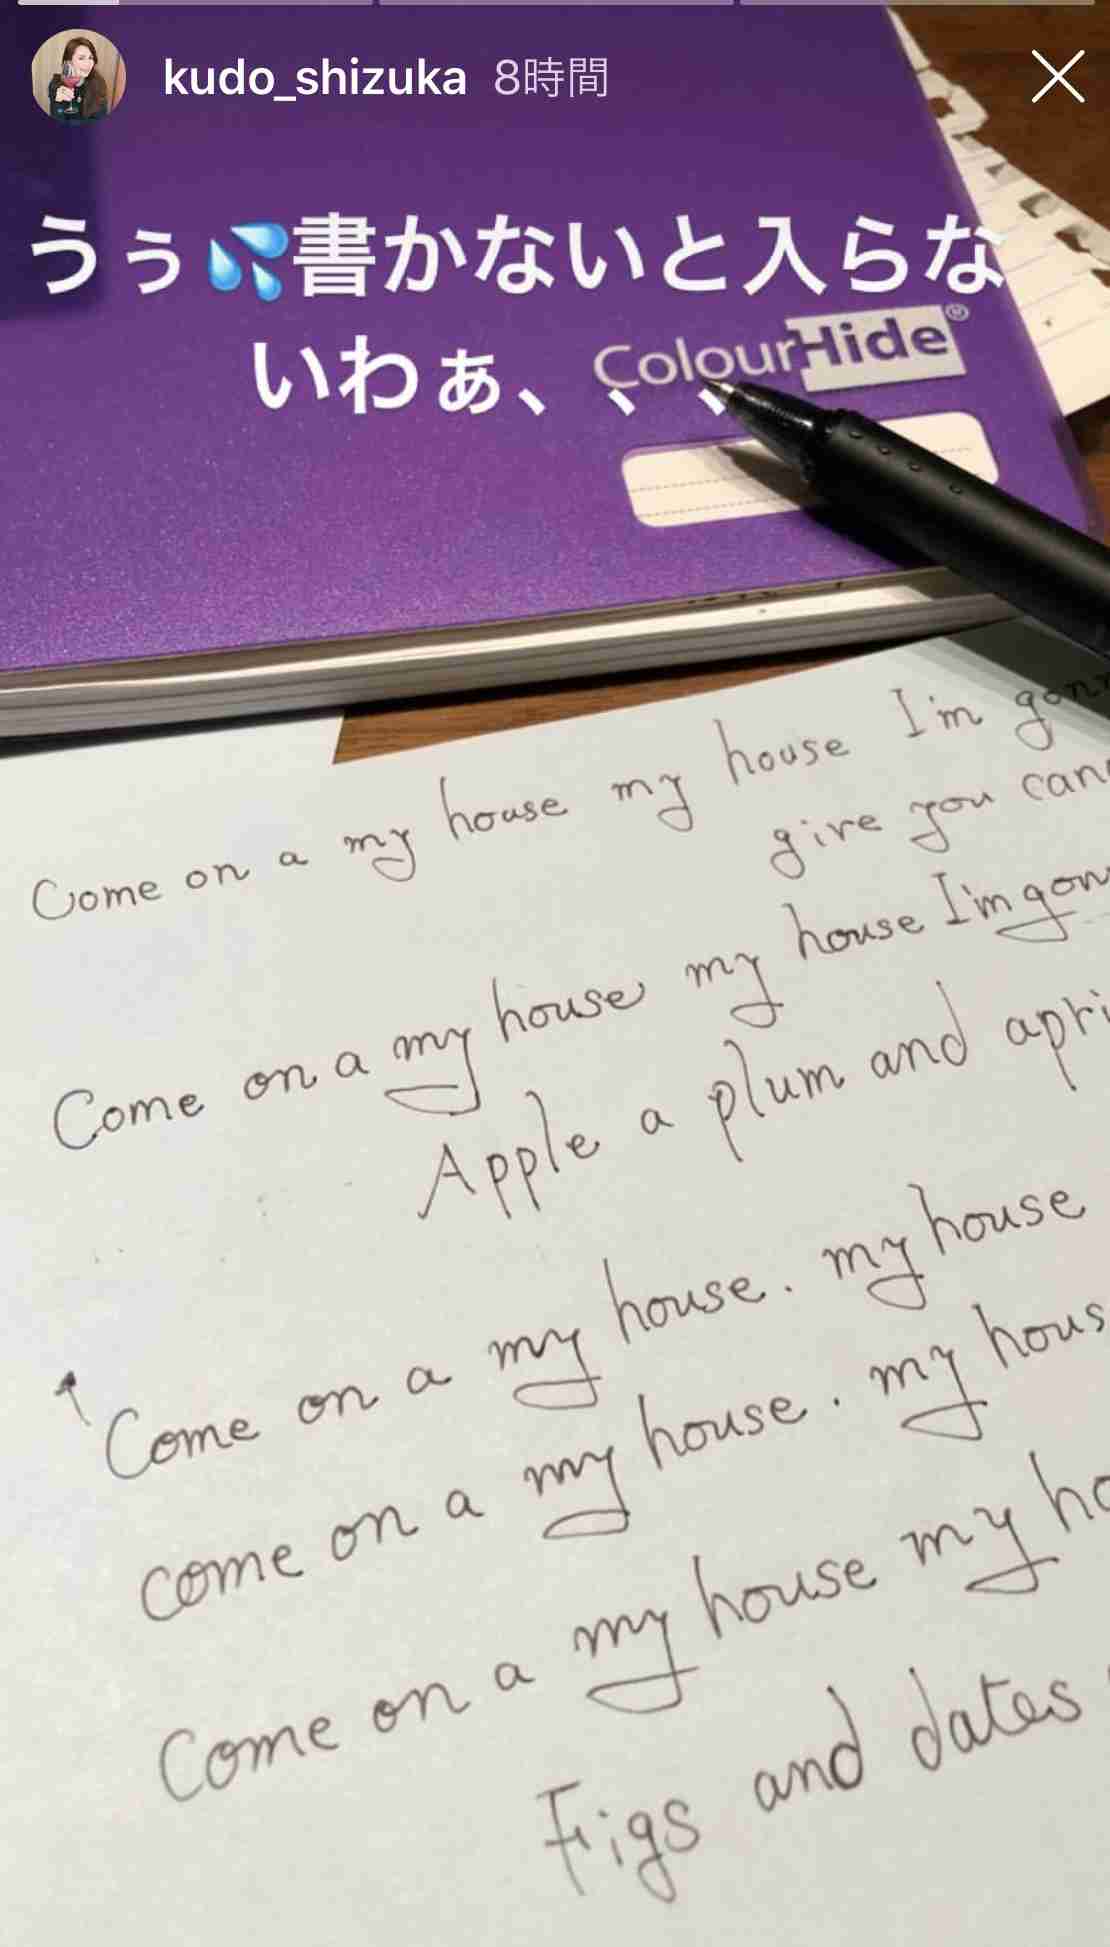 kudo_shizuka 8時間
うぅ💦書かないと入らな
いわぁ、、、
ColourHide®
Come on a my house my house I'm
give you
Come on a my house my house I'm
Apple a plum and
Come on a my house. my house
come on a my house. my
Come on a my house my
Figs and dates